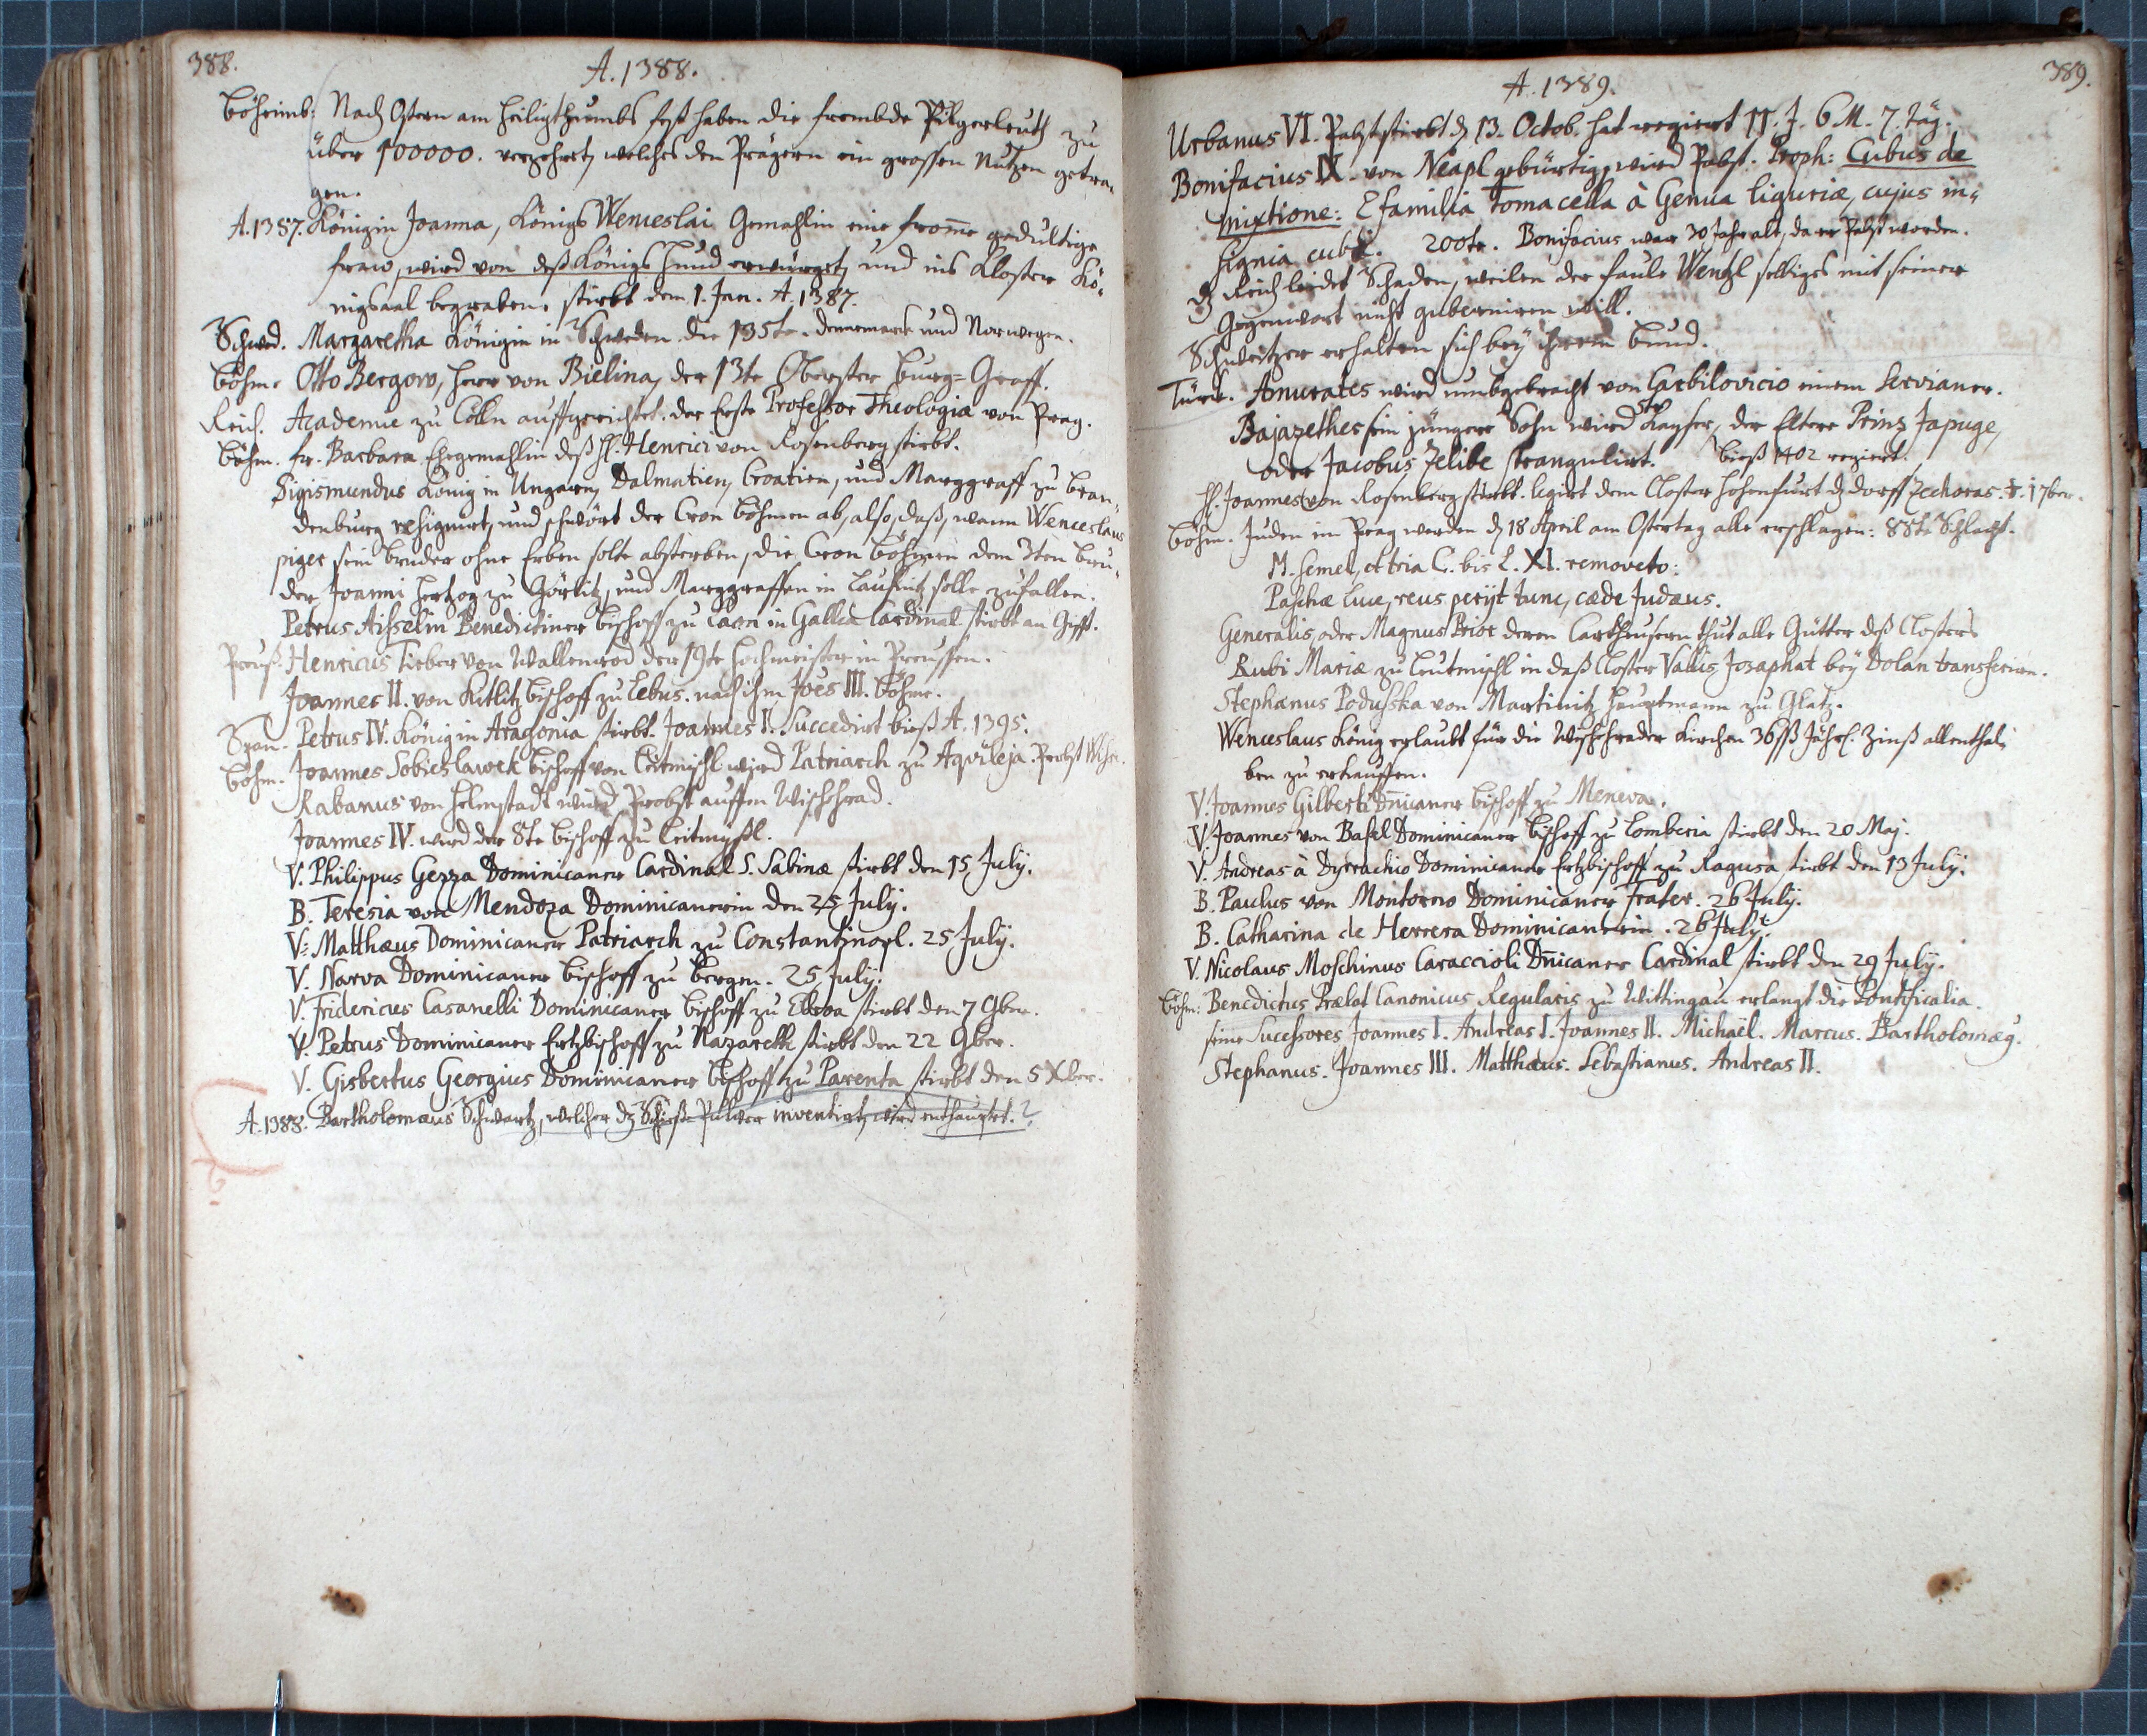 388.
A. 1388.
Böheimb: Nach Ostern am Heiligthumbs fest haben die frembde Pilgerleuth zu
über 100000. verzehret, welches den Pragern ein grossen Nutzen getra-
gen.
A. 1387. Königin Joanna, Königs Wenceslai Gemahlin eine fromme gedultige
fraw, wird von deß Königs Hund erwürget, und ins Kloster Kö-
nigsaal begraben. stirbt dem 1. Jan. A. 1387.
Schwed. Margaretha Königin in Schweden die 135te. Dennemarck und Norwegen.
Böhm. Otto Bergow, Herr von Bielina, der 13te Oberster Burg-Graff.
Reich. Academie zu Cölln auffgerichtet. der Erste Professor Theologiæ von Prag.
Böhm. Fr. Barbara Ehegemahlin deß H. Henrici von Rosenberg stirbt.
Sigismundus König in Ungarn, Dalmatien, Croatien, und Marggraff zu Bran-
denburg resignirt, und schwört der Cron Böhmen ab, also, daß, wann Wenceslaus
piger sein bruder ohne Erben solte absterben, die Cron Böhmen dem 3ten bru-
der Joanni Hertzog zu Görlitz, und Marggraffen in Laußnitz solle zufallen.
Petrus Aisselin Benedictiner bischoff zu Laon in Gallia Cardinal stirbt an Gifft.
Preuß. Henricus Tieber von Wallenrod der 19te Hochmeister in Preussen.
Joannes II. von Kitlitz bischoff zu Lebus. nach ihm Joës III. Böhme.
Span. Petrus IV. König in Aragonia stirbt. Joannes I. Succedirt bieß A. 1395.
Böhm. Joannes Sobieslawek bischoff von Leitmischl wird Patriarch zu Aqvileja. Probst Wiss.
Rabanus von Helmstadt wird Probst auffen Wischehrad.
Joannes IV. wird der 8te bischoff zu Leitmyschl.
V. Philippus Gezza Dominicaner Cardinal S. Sabinæ stirbt den 15 July.
B. Teresia von Mendoza Dominicanerin den 25 July.
V. Matthæus Dominicaner Patriarch zu Constantinopl. 25 July.
V. Narva Dominicaner bischoff zu bergen. 25 July.
V. Fridericus Casanelli Dominicaner bischoff zu Elva stirbt den 7 9ber.
V. Petrus Dominicaner Ertzbischoff zu Nazareth stirbt den 22 9ber.
V. Gisbertus Georgius Dominicaner bischoff zu Parenta stirbt den 5 Xber.
A. 1388. Bartholomæus Schwartz, welcher dz Schieß-Pulver inventirt, wird enthauptet. ?
389.
A. 1389.
Urbanus VI. Pabst stirbt dz 13. Octob. hat regiert 11. J. 6 M. 7. Täg.
Bonifacius IX. von Neapl gebürtig, wird Pabst. Proph: Cubus de
mixtione: E familia Tomacella à Genua liguriæ, cujus in-
signia cubi. 200te. Bonifacius war 30 Jahr alt, da er Pabst worden.
dz Reich leidet Schaden, weilen der faule Wenzl selbiges mit seiner
Gegenwart nicht guberniren will.
Schweitzer erhalten sich bey ihrem bund.
Türck. Amurates wird umbgebracht von Carbilovicio einem Servianer.
Bajazethes sein jüngerer Sohn wird 5te Kayser, der Eltere Prinz Japuge,
oder Jacobus Zelibe strangulirt. bieß 1402 regiert.
H. Joannes von Rosenberg stirbt. legirt dem Closter Hohenfurt dz dorff Zechoras. 1. 7ber.
Böhm. Juden in Prag werden dz 18 April am Ostertag alle erschlagen: 88te Schlacht.
M. semel, et tria C. bis L. XI. removeto:
Paschæ luce, reus perijt tunc, cæde Judæus.
Generalis, oder Magnus Prior deren Cartheusern thut alle Gütter deß Closters
Rubi Mariæ zu Leutmischl in daß Closter Vallis Josaphat bey Dolan transferirn.
Stephanus Poduska von Martinitz Hauptmann zu Glatz.
Wenceslaus König erlaubt für die Wischehrader Kirchen 36 ß Jährl. Zinß allenthal-
ben zu erkauffen.
V. Joannes Gilberti Dnicaner bischoff zu Meneva.
V. Joannes von Basel Dominicaner bischoff zu Lomberia stirbt den 20 Maj.
V. Andreas à Dyrrachio Dominicaner Ertzbischoff zu Ragusa stirbt den 13 July.
B. Paulus von Montorvo Dominicaner Frater. 26 July.
B. Catharina de Herrera Dominicanerin. 26 July.
V. Nicolaus Moschinus Caraccioli Dnicaner Cardinal stirbt den 29 July.
Böhm: Benedictus Prælat Canonicus Regularis zu Wittingau erlangt die Pontificalia.
seine Sucessores Joannes I. Andreas I. Joannes II. Michaël. Marcus. Bartholomæg.
Stephanus. Joannes III. Matthæus. Sebastianus. Andreas II.